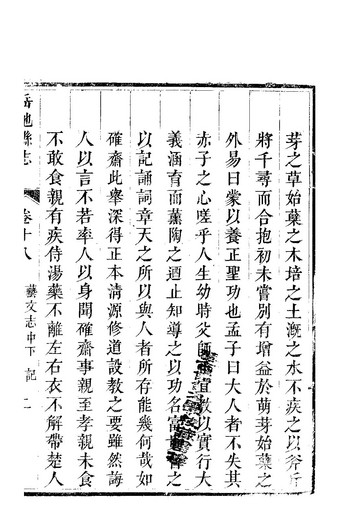 芽之草始蘖之木培之土溉之水不疾之以斧斤
將千尋而合抱初未嘗別有增益於萌芽始蘖之
外易曰蒙以養正聖功也孟子曰大人者不失其
赤子之心嗟乎人生幼時父師宣教以實行大
義涵育而薰陶之迺止知導之以功名富
以記誦詞章天之所以與人者所存能幾何哉如
確齋此舉深得正本清源修道設教之要雖然誨
人以言不若率人以身聞確齋事親至孝親未食
不敢食親有疾侍湯藥不離左右衣不解帶楚人
岳池縣志
卷十八
藝文志中下 記 二